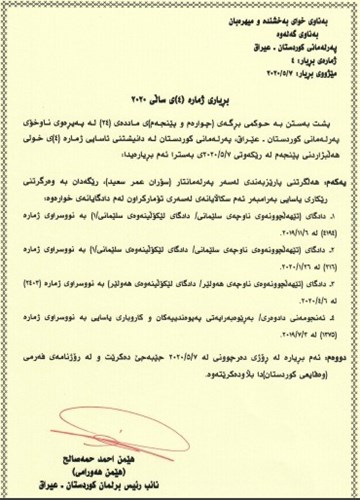 بەناوی خوای بەخشندە و میهرەبان
بەناوی گەلەوە
پەرلەمانی کوردستان - عیراق
ژمارەی بڕیار: ٤
مێژووی بڕیار: ٢٠٢٠/٥/٧
بڕیاری ژمارە (٤)ی ساڵی ٢٠٢٠
پشت بەستن بە حوکمی بڕگەی (چوارەم و پێنجەم)ی ماددەی (٢٤) لە پەیڕەوی ناوخۆی
پەرلەمانی کوردستان - عێراق، پەرلەمانی کوردستان لە دانیشتنی ئاسایی ژمارە (٤)ی خولی
هەڵبژاردنی پێنجەم لە ڕێکەوتی ٢٠٢٠/٥/٧ی بەسترا ئەم بڕیارەیدا:
یەکەم: هەڵگرتنی پارێزبەندی لەسەر پەرلەمانتار (سۆران عمر سعید)، ڕێگەدان بە وەرگرتنی
ڕێکاری یاسایی بەرامبەر ئەم سکاڵایانەی لەسەری تۆمارکراون لەم دادگایانەی خوارەوە:
١. دادگای (تێهەڵچوونەوەی ناوچەی سلێمانی/ دادگای لێکۆڵینەوەی سلێمانی/١) بە نووسراوی ژمارە
(٤١٩٤) لە ٢٠١٩/١١/٦.
٢. دادگای (تێهەڵچوونەوەی ناوچەی سلێمانی/ دادگای لێکۆڵینەوەی سلێمانی/١) بە نووسراوی ژمارە
(٢١٦) لە ٢٠٢٠/١/٢٦.
٣. دادگای (تێهەڵچوونەوەی ناوچەی هەولێر/ دادگای لێکۆڵینەوەی هەولێر) بە نووسراوی ژمارە (٢٤٠٢)
لە ٢٠٢٠/٤/٦.
٤. ئەنجومەنی دادوەری/ بەڕێوەبەرایەتی پەیوەندییەکان و کاروباری یاسایی بە نووسراوی ژمارە
(١٢٧٥) لە ٢٠١٩/٧/٢.
دووەم: ئەم بڕیارە لە ڕۆژی دەرچوونی لە ٢٠٢٠/٥/٧ جێبەجێ دەکرێت و لە ڕۆژنامەی فەرمی
(وەقایعی کوردستان)دا بڵاودەکرێتەوە.
هێمن احمد حمەصالح
(هێمن هەورامی)
نائب رئيس برلمان كوردستان - عيراق